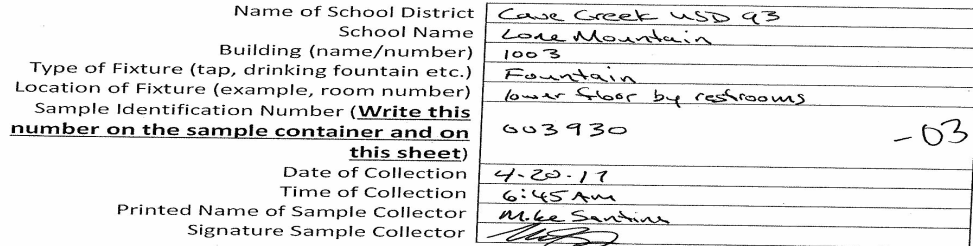 Name of School District Cave Creek USD 93
School Name Lone Mountain
Building (name/number) 1003
Type of Fixture (tap, drinking fountain etc.) Fountain
Location of Fixture (example, room number) lower floor by restrooms
Sample Identification Number (Write this
number on the sample container and on 003930 -03
this sheet)
Date of Collection 4-20-17
Time of Collection 6:45 Am
Printed Name of Sample Collector Mike
Signature Sample Collector